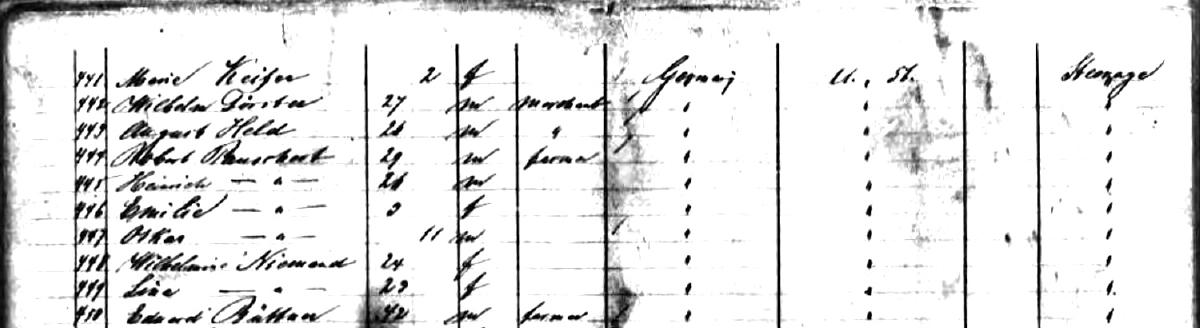 441 Marie Keifer 2 f Germany U. St. Steerage
442 Wilhelm Dörster 27 m merchant " " "
443 August Held 26 m " " " "
444 Robert Rauschert 29 m farmer " " "
445 Heinrich — " — 26 m " " "
446 Emilie — " — 3 f " " "
447 Oskar — " — 11 m " " "
448 Wilhelmine Niemand 24 f " " "
449 Line — " — 23 f " " "
450 Eduard Büttner 42 m farmer " " "